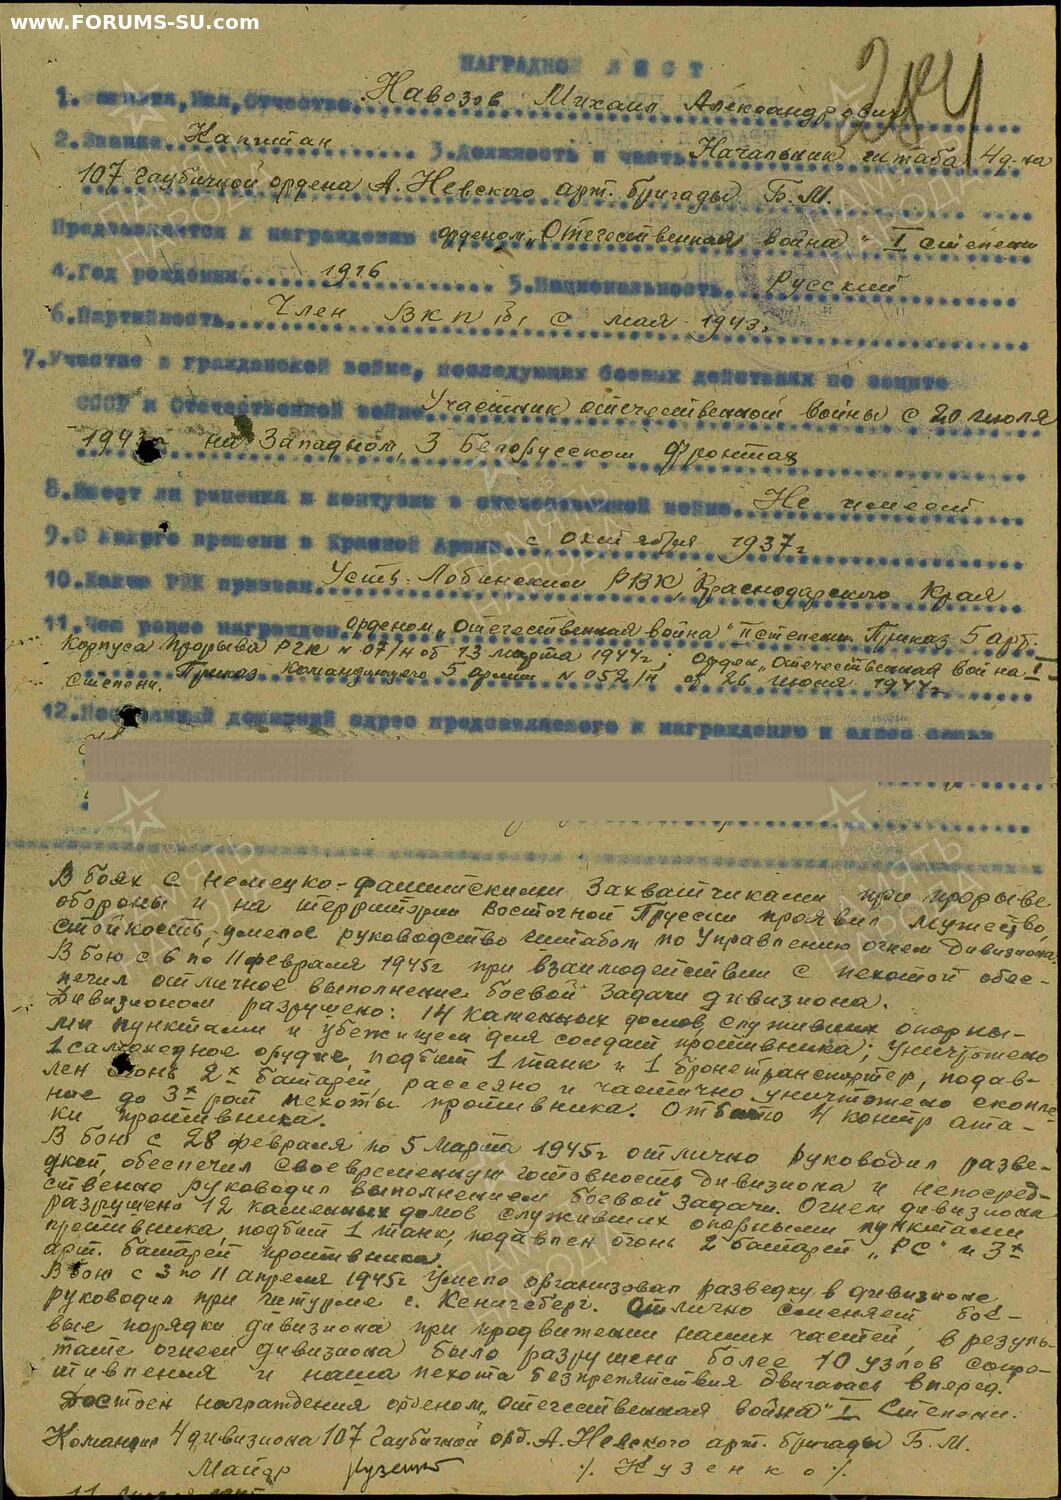 www.FORUMS-SU.com
НАГРАДНОЙ ЛИСТ
284
1. Фамилия, Имя, Отчество Навозов Михаил Александрович
2. Звание Капитан 3. Должность и часть Начальник штаба 4 д-на
107 гаубичной ордена А. Невского арт. бригады Б.М.
Представляется к награждению орденом „Отечественная война" I степени
4. Год рождения 1916 5. Национальность Русский
6. Партийность Член ВКП(б) с мая 1943г.
7. Участие в гражданской войне, последующих боевых действиях по защите
СССР и Отечественной войне Участник отечественной войны с 20 июля
1943г на Западном, 3 Белорусском фронтах
8. Имеет ли ранения и контузии в отечественной войне Не имеет
9. С какого времени в Красной Армии с октября 1937г
10. Каким РВК призван Усть-Лабинским РВК, Краснодарского Края
11. Чем ранее награжден орденом „Отечественная война" II степени. Приказ 5 арт.
Корпуса Прорыва РГК N 07/н от 13 марта 1944г; орден „Отечественная война I-
степени. Приказ Командующего 5 армии N 052/н от 26 июня 1944г
12. Постоянный домашний адрес представляемого к награждению и адрес семьи
В боях с немецко-фашистскими захватчиками при прорыве
обороны и на территории Восточной Пруссии проявил мужество,
стойкость, умелое руководство штабом по Управлению огнем дивизиона.
В бою с 6 по 11 февраля 1945г при взаимодействии с пехотой обес-
печил отличное выполнение боевой задачи дивизиона.
Дивизионом разрушено: 14 каменных домов, служивших опорны-
ми пунктами и убежищем для солдат противника; уничтожено
1 самоходное орудие, подбит 1 танк и 1 бронетранспортер, подав-
лен огонь 2х батарей, рассеяно и частично уничтожено скопле-
ние до 3х рот пехоты противника. Отбито 4 контр ата-
ки противника.
В бою с 28 февраля по 5 марта 1945г отлично руководил разве-
дкой, обеспечил своевременную готовность дивизиона и непосред-
ственно руководил выполнением боевой задачи. Огнем дивизиона
разрушено 12 каменных домов служивших опорными пунктами
противника, подбит 1 танк, подавлен огонь 2 батарей „РС" и 3х
арт. батарей противника.
В бою с 3 по 11 апреля 1945г умело организовал разведку в дивизионе
руководил при штурме г. Кенигсберг. Отлично сменяет бое-
вые порядки дивизиона при продвижении наших частей, в резуль-
тате огнем дивизиона было разрушены более 10 узлов сопро-
тивления и наша пехота безпрепятствия двигалась вперед.
Достоин награждения орденом „Отечественная война" I Степени.
Командир 4 дивизиона 107 Гаубичной орд. А. Невского арт. бригады Б.М.
Майор Кузенко /Кузенко/